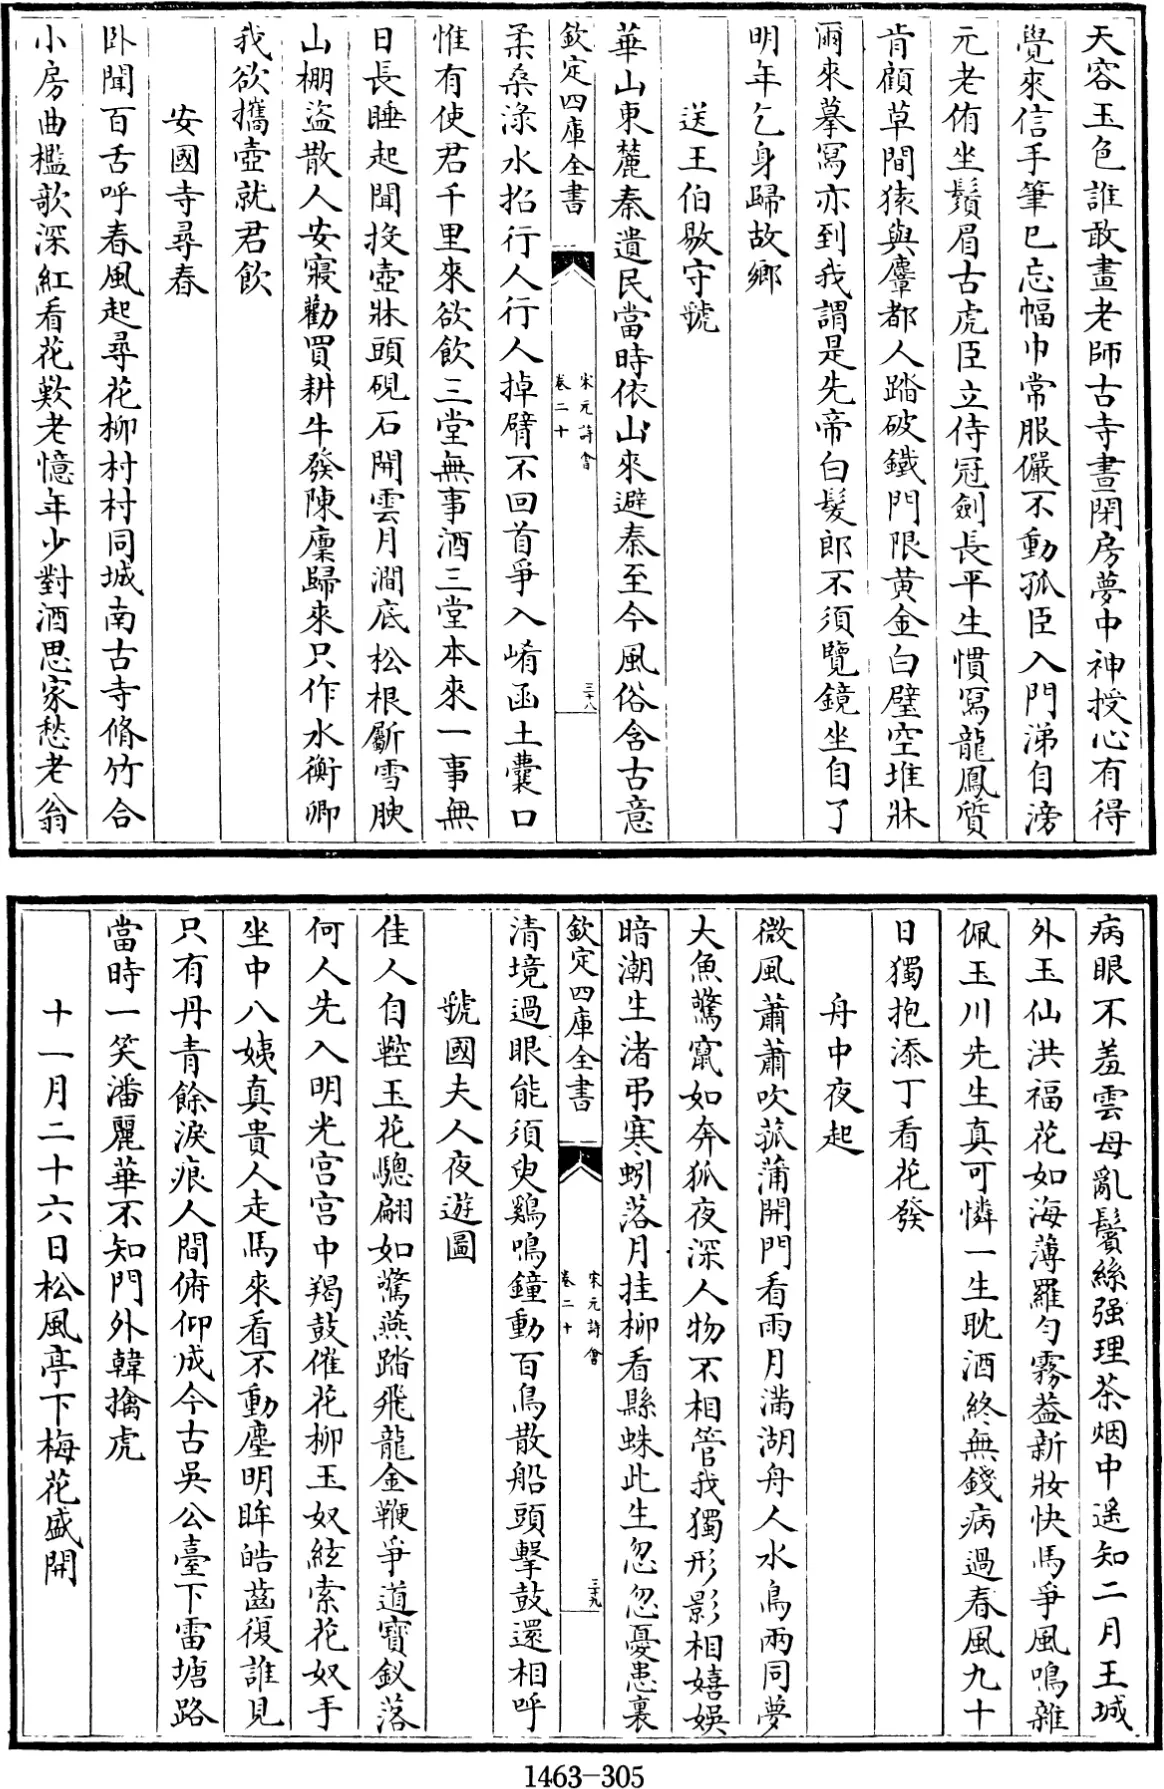 天容玉色誰敢畫老師古寺晝閉房夢中神授心有得
覺來信手筆已忘幅巾常服儼不動孤臣入門涕自滂
元老侑坐鬚眉古虎臣立侍冠劍長平生慣寫龍鳳質
肯顧草間猿與麞都人踏破鐵門限黃金白璧空堆牀
爾來摹寫亦到我謂是先帝白髮郎不須覽鏡坐自了
明年乞身歸故鄉
送王伯敭守虢
華山東麓秦遺民當時依山來避秦至今風俗含古意
欽定四庫全書
宋元詩會
卷二十
三十八
柔桑淥水招行人行人掉臂不回首爭入崤函土囊口
惟有使君千里來欲飲三堂無事酒三堂本來一事無
日長睡起聞投壺牀頭硯石開雲月澗底松根斸雪腴
山棚盜散人安寢勸買耕牛發陳廩歸來只作水衡卿
我欲攜壺就君飲
安國寺尋春
卧聞百舌呼春風起尋花柳村村同城南古寺脩竹合
小房曲檻歌深紅看花歎老憶年少對酒思家愁老翁
病眼不羞雲母亂鬢絲强理茶烟中遥知二月王城
外玉仙洪福花如海薄羅勻霧葢新妝快馬爭風鳴雜
佩玉川先生真可憐一生耽酒終無錢病過春風九十
日獨抱添丁看花發
舟中夜起
微風蕭蕭吹菰蒲開門看雨月滿湖舟人水鳥兩同夢
大魚驚竄如奔狐夜深人物不相管我獨形影相嬉娛
暗潮生渚弔寒蚓落月挂柳看縣蛛此生忽忽憂患裏
欽定四庫全書
宋元詩會
卷二十
三十九
清境過眼能須臾鷄鳴鐘動百鳥散船頭擊鼓還相呼
虢國夫人夜遊圖
佳人自鞚玉花驄翩如驚燕踏飛龍金鞭爭道寶釵落
何人先入明光宫宫中羯鼓催花柳玉奴絃索花奴手
坐中八姨真貴人走馬來看不動塵明眸皓齒復誰見
只有丹青餘淚痕人間俯仰成今古吳公臺下雷塘路
當時一笑潘麗華不知門外韓擒虎
十一月二十六日松風亭下梅花盛開
1463-305